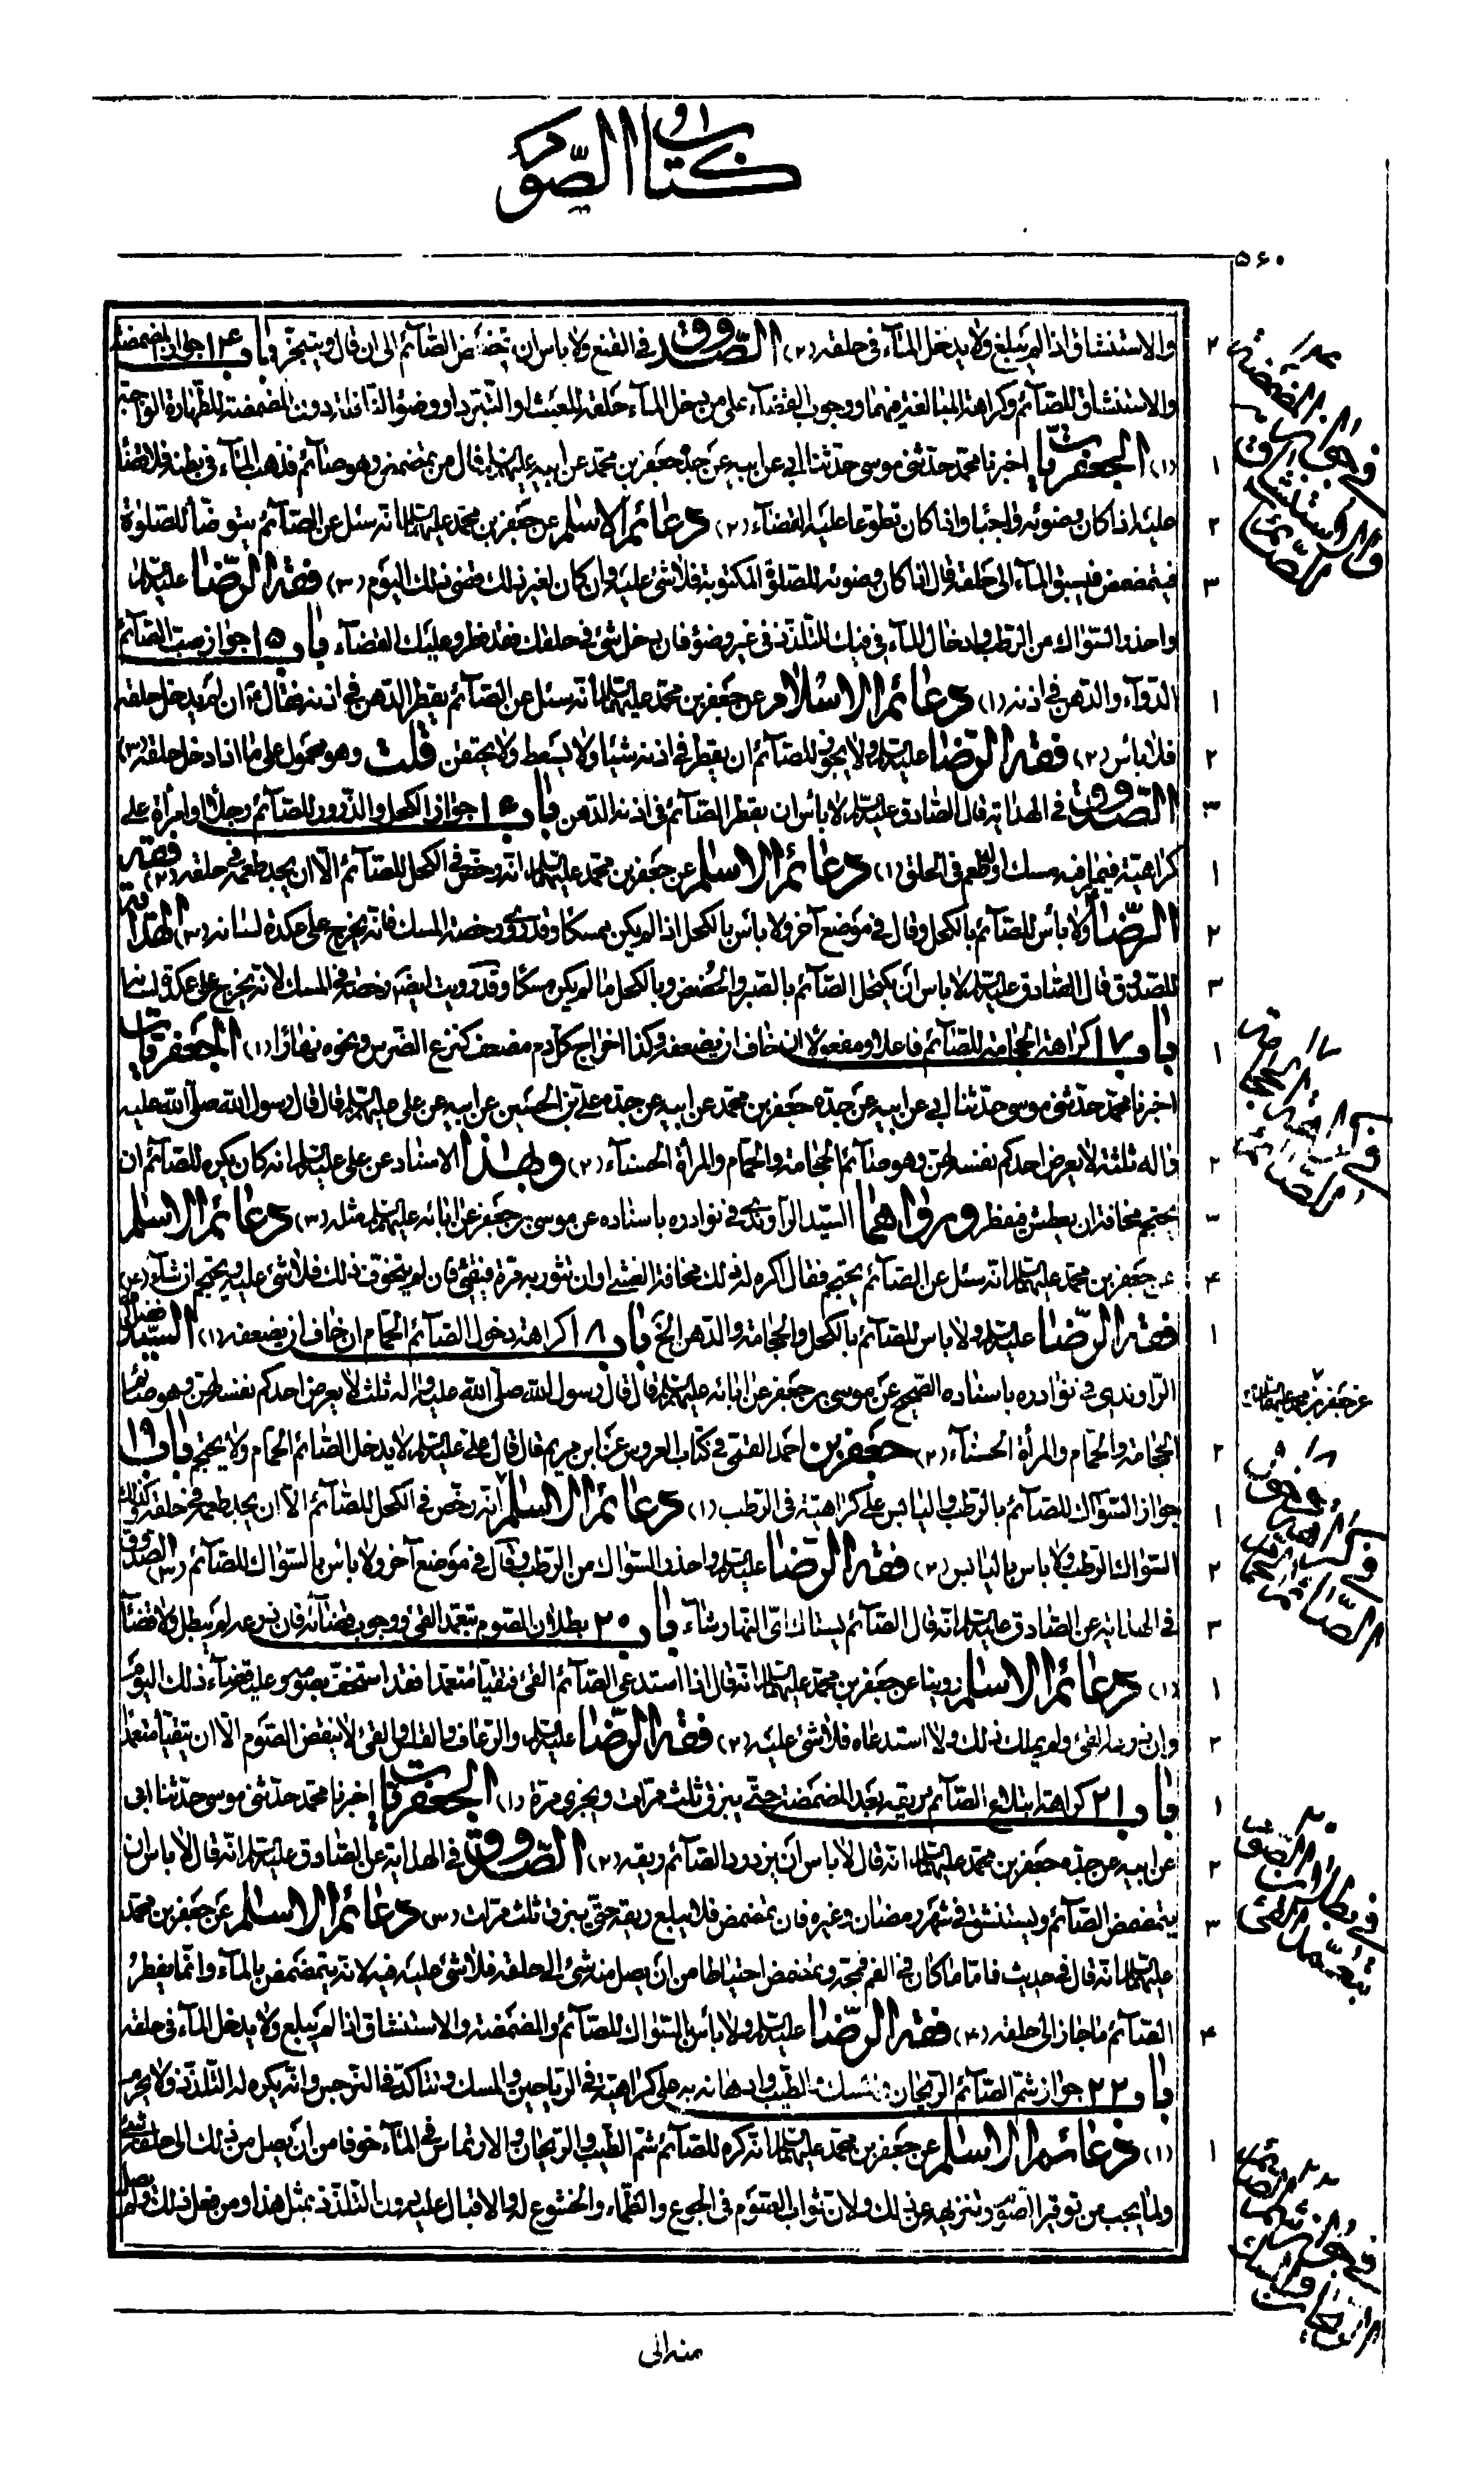 ابواب
كتاب الصوم
۵۶۰
والاستنشاق اذا لم يبلع ولا يدخل المآء فى حلقه (۲) الصّدوق فى المقنع ولا باس ان يتمضمض الصّآئم الى ان قال ويتبخّر باب ۱۴ جواز المضمضة
والاستنشاق للصّآئم وكراهة المبالغة فيهما ووجوب القضآء على من دخل المآء حلقه للعبث او التبرّد او وضوء النّافلة دون المضمضة للطّهارة الواجبة
(۱) الجعفريّات اخبرنا محمّد حدّثنى موسى حدّثنا ابى عن ابيه عن جدّه جعفر بن محمّد عن ابيه عليهم السلام قال من تمضمض وهو صآئم فذهب المآء فى بطنه فلا قضآء
عليه اذا كان وضوئه واجبًا وان كان تطوّعا عليه القضآء (۲) دعآئم الاسلام عن جعفر بن محمّد عليهما السلام انّه سئل عن الصّآئم يتوضّأ للصّلوة
فيتمضمض فيسبق المآء الى حلقه قال اذا كان وضوئه للصّلوة المكتوبة فلا شئ عليه وان كان لغير ذلك قضى ذلك اليوم (۳) فقه الرّضا عليه السلام
واحذر السّواك من الرّطب وادخال المآء فى فيك للتلذّذ فى غير وضوء فان دخل شئ فى حلقك فقد فطر وعليك القضآء باب ۱۵ جواز صبّ الصّآئم
الدّوآء والدّهن فى اذنه (۱) دعآئم الاسلام عن جعفر بن محمّد عليهما السلام انّه سئل عن الصّآئم يقطر الدّهن فى اذنه فقال ان لم يدخل حلقه
فلا باس (۲) فقه الرّضا عليه السلام ولا يجوز للصّآئم ان يقطر فى اذنه شيئا ولا يسعط ولا يحتقن قلت وهو محمول على ما اذا دخل حلقه (۳)
الصّدوق فى الهداية قال الصّادق عليه السلام لا بأس ان يقطر الصّآئم فى اذنه الدّهن باب ۱۶ جواز الكحل والذّرور للصّآئم رجلًا او امرأة على
كراهيّة فيما فيه مسك او طعم فى الحلق (۱) دعآئم الاسلام عن جعفر بن محمّد عليهما السلام انّه رخّص فى الكحل للصّآئم الّا ان يجد طعمه فى حلقه (۲) فقه
الرّضا ولا بأس للصّآئم بالكحل وقال فى موضع آخر ولا باس بالكحل اذا لم يكن ممسكا وقد روى رخصة المسك فانّه يخرج على عكدة لسانه (۳) الهداية
للصّدوق قال الصّادق عليه السلام لا باس ان يكتحل الصّآئم بالصّبر والحضض وبالكحل ما لم يكن مسكا وقد رويت ايضًا رخصة فى المسك لانّه يخرج على عكدة لسانه
باب ۱۷ كراهة الحجامة للصّآئم فاعلا ومفعولا ان خاف ان يضعفه وكذا اخراج كلّ دم مضعف كنزع الضّرس ونحوه نهارًا (۱) الجعفريّات
اخبرنا محمّد حدّثنى موسى حدّثنا ابى عن ابيه عن جدّه جعفر بن محمّد عن ابيه عن جدّه علىّ بن الحسين عن ابيه عن علىّ عليه السلام قال قال رسول الله صلّى الله عليه
واله ثلثة لا يعرض احدكم نفسه لهنّ وهو صآئم الحجامة والحمّام والمرأة الحسنآء (۲) وبهذا الاسناد عن علىّ عليه السلام انّه كان يكره للصّآئم ان
يحتجم مخافة ان يعطش فيفطر ورواهما السّيّد الرّاوندى فى نوادره باسناده عن موسى بن جعفر عن ابائه عليهم السلام مثله (۳) دعآئم الاسلام
عن جعفر بن محمّد عليهما السلام انّه سئل عن الصّآئم يحتجم فقال اكره له ذلك مخافة الغشى او ان تثور به مرّة فيقئ فان لم يتخوّف ذلك فلا شئ عليه ويحتجم ان شآء (۴)
فقه الرّضا عليه السلام ولا باس للصّآئم بالكحل والحجامة والدّهن الخ باب ۱۸ كراهة دخول الصّآئم الحمّام ان خاف ان يضعفه (۱) السّيّد فضل الله
الرّاوندى فى نوادره باسناده الصّحيح عن موسى بن جعفر عن ابائه عليهم السلام قال قال رسول الله صلّى الله عليه واله ثلث لا يعرض احدكم نفسه لهنّ وهو صآئم
الحجامة والحمّام والمرأة الحسنآء (۲) جعفر بن احمد القمّى فى كتاب العروس عن ابن مريم قال قال علىّ عليه السلام لا يدخل الصّائم الحمّام ولا يحتجم باب ۱۹
جواز السّواك للصّآئم بالرّطب واليابس على كراهيّة فى الرّطب (۱) دعآئم الاسلام انّه رخّص فى الكحل للصّآئم الّا ان يجد طعمه فى حلقه وكذلك
السّواك الرّطب ولا باس باليابس (۲) فقه الرّضا عليه السلام واحذر السّواك من الرّطب وقال فى موضع آخر ولا بأس بالسّواك للصّآئم (۳) الصّدوق
فى الهداية عن الصّادق عليه السلام انّه قال الصّآئم يستاك اىّ النّهار شآء باب ۲۰ بطلان الصّوم بتعمّد القئ ووجوب قضآئه فان ذرعه لم يبطل ولا قضآء
(۱) دعآئم الاسلام روينا عن جعفر بن محمّد عليهما السلام انّه قال اذا استدعى الصّآئم القئ فتقيّأ متعمّدا فقد استخفّ بصومه وعليه قضآء ذلك اليوم
وان ذرعه القئ ولم يملك ذلك ولا استدعاه فلا شئ عليه (۲) فقه الرّضا عليه السلام والرّعاف والقلس والقئ لا ينقض الصّوم الّا ان يتقيّأ متعمّدًا
باب ۲۱ كراهة ابتلاع الصّآئم ريقه بعد المضمضة حتّى يبزق ثلث مرّات ويجزى مرّة (۱) الجعفريّات اخبرنا محمّد حدّثنى موسى حدّثنا ابى
عن ابيه عن جدّه جعفر بن محمّد عليهما السلام انّه قال لا باس ان يزدرد الصّآئم ريقه (۲) الصّدوق فى الهداية عن الصّادق عليه السلام انّه قال لا باس ان
يتمضمض الصّآئم ويستنشق فى شهر رمضان وغيره فان تمضمض فلا يبلع ريقه حتّى يبزق ثلث مرّات (۳) دعآئم الاسلام عن جعفر بن محمّد
عليهما السلام انّه قال فى حديث فامّا ما كان فى الفم فمجّه وتمضمض احتياطا من ان يصل منه شئ الى حلقه فلا شئ عليه فيه لانّه يتمضمض بالمآء وانّما يفطر
الصّآئم ما جاز الى حلقه (۴) فقه الرّضا عليه السلام ولا بأس بالسّواك للصّآئم والمضمضة والاستنشاق اذا لم يبلع ولا يدخل المآء فى حلقه
باب ۲۲ جواز شمّ الصّآئم الرّيحان والمسك والطّيب وادهانه به على كراهيّة فى الرّياحين والمسك وتتاكّد فى النّرجس وانّه يكره له التّلذّذ ولا يحرم
(۱) دعآئم الاسلام عن جعفر بن محمّد عليهما السلام انّه كره للصّآئم شمّ الطّيب والرّيحان والارتماس فى المآء خوفا من ان يصل من ذلك الى حلقه شئ
ولما يجب من توقير الصّوم وتنزيهه عن ذلك ولانّ ثواب الصّوم فى الجوع والظّماء والخشوع له والاقبال عليه دون التّلذّذ بمثل هذا ومن فعل ذلك ولم يصل
منه الى
فى جواز المضمضة
والاستنشاق
للصّآئم
عن جعفر بن محمد عليهما السلام
فى بطلان الصّوم
بتعمّد القئ